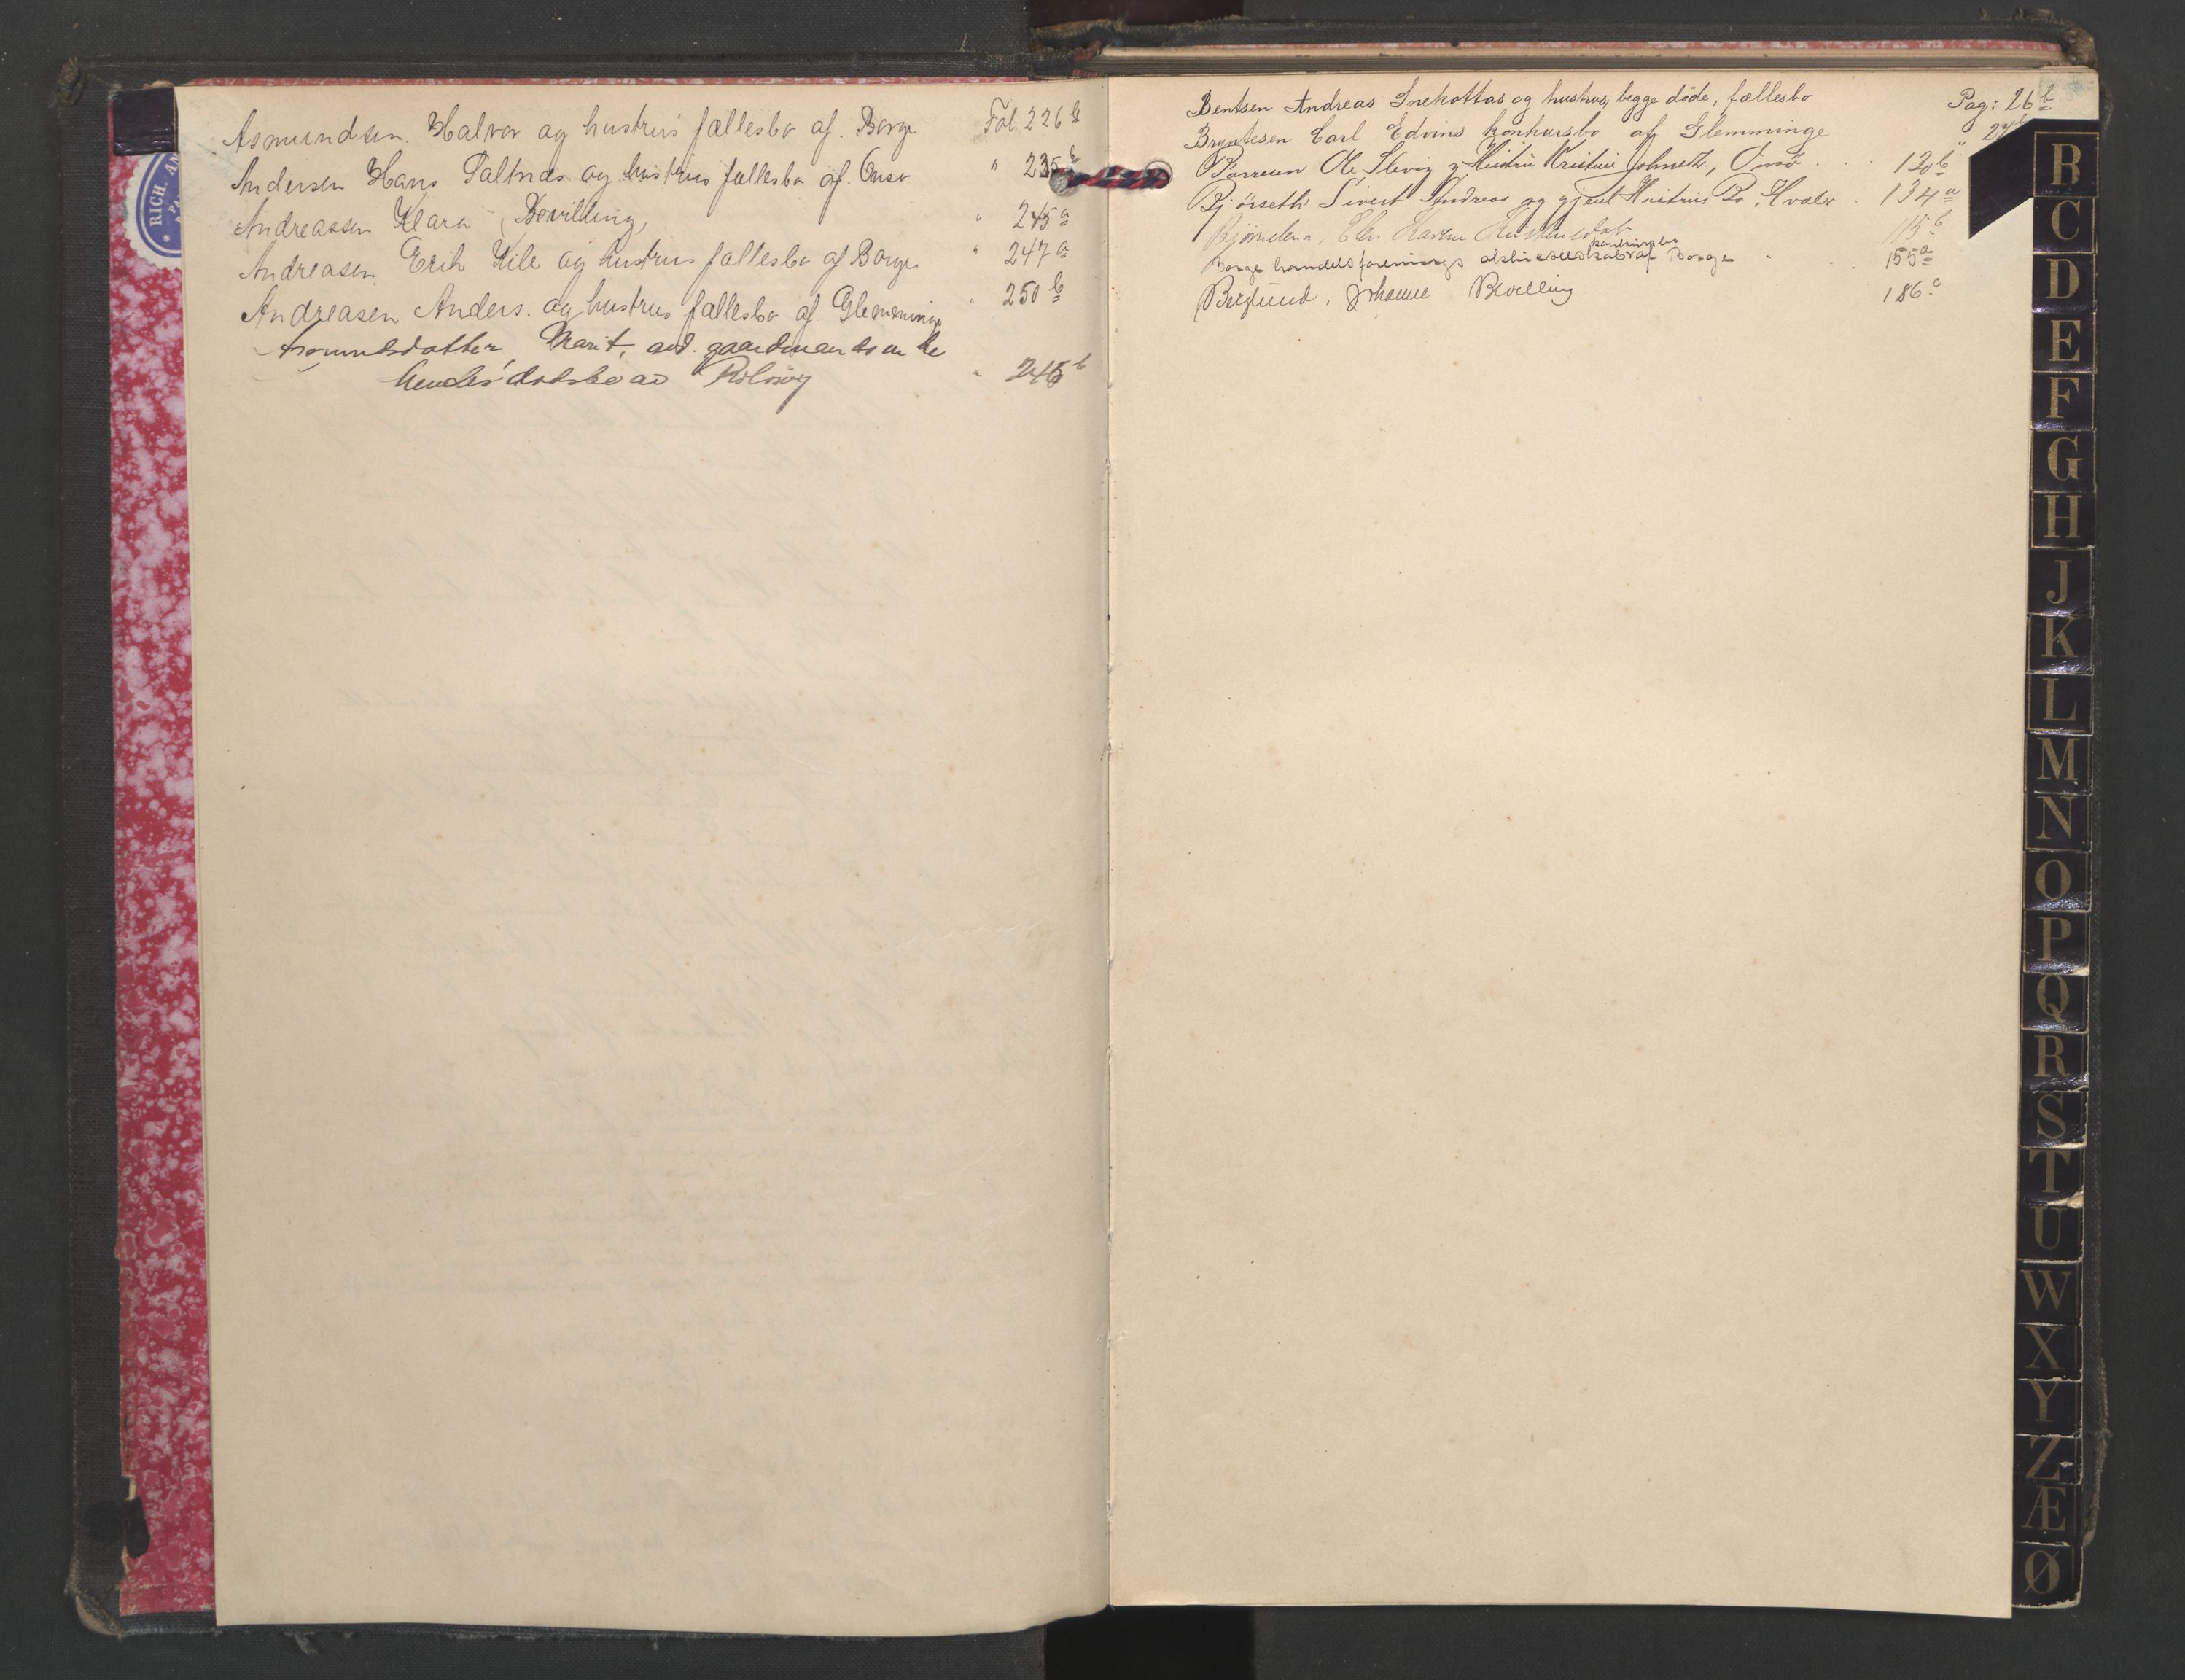 RICH. AN
Asmundsen. Halvor og hustrus fællesbo af. Borge Fol. 226 b
Andersen Hans Paltnæs og hustrus fællesbo af. Onsø " 235 b
Andreassen Klara, Bevilling, " 245 a
Andreasen. Erik Kile og hustrus fællesbo af Borge " 247 a
Andreasen Anders. og hustrus fællesbo af Glemminge " 250 b
Asmundsdatter, Marit, gaardmands
dødsbo Rolvsøy " 246 b
Bentsen Andreas Snekottas og hustrus, begge døde, fællesbo Pag: 26 b
Bryntesen Carl Edvins konkursbo af Glemminge "
Ole Slevig og Hustru Kristine Onsø . . . 120 b
Bjørseth Sivert Andreas og gjenl Hustrus Bo, Hvaler . 134 a
115 b
konkursbo
Borge handelsforenings aktieselskab af Borge . . . 155 a
Berglund, Johanne Bevilling 186 a
B
C
D
E
F
G
H
J
K
L
M
N
O
P
Q
R
S
T
U
W
X
Y
Z
Æ
Ø